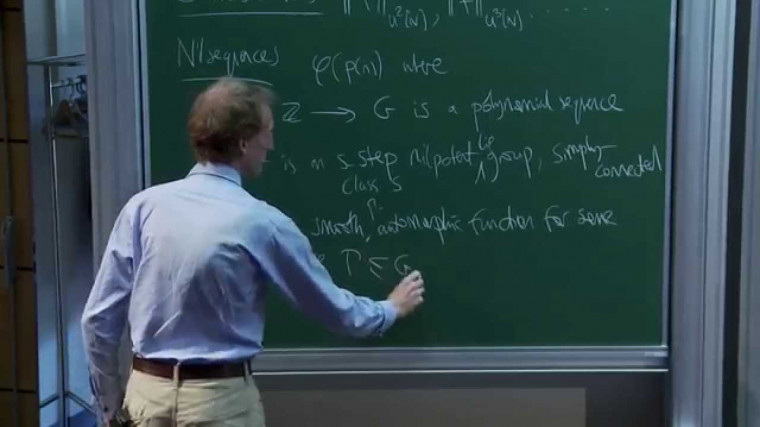 ‖·‖u²[N], ‖·‖u³[N], .....
Nilsequences φ(p(n)) where
ℤ → G is a polynomial sequence
is an s-step nilpotent Lie group, simply-connected
class s
smooth, Γ- automorphic function for some
Γ ≤ G